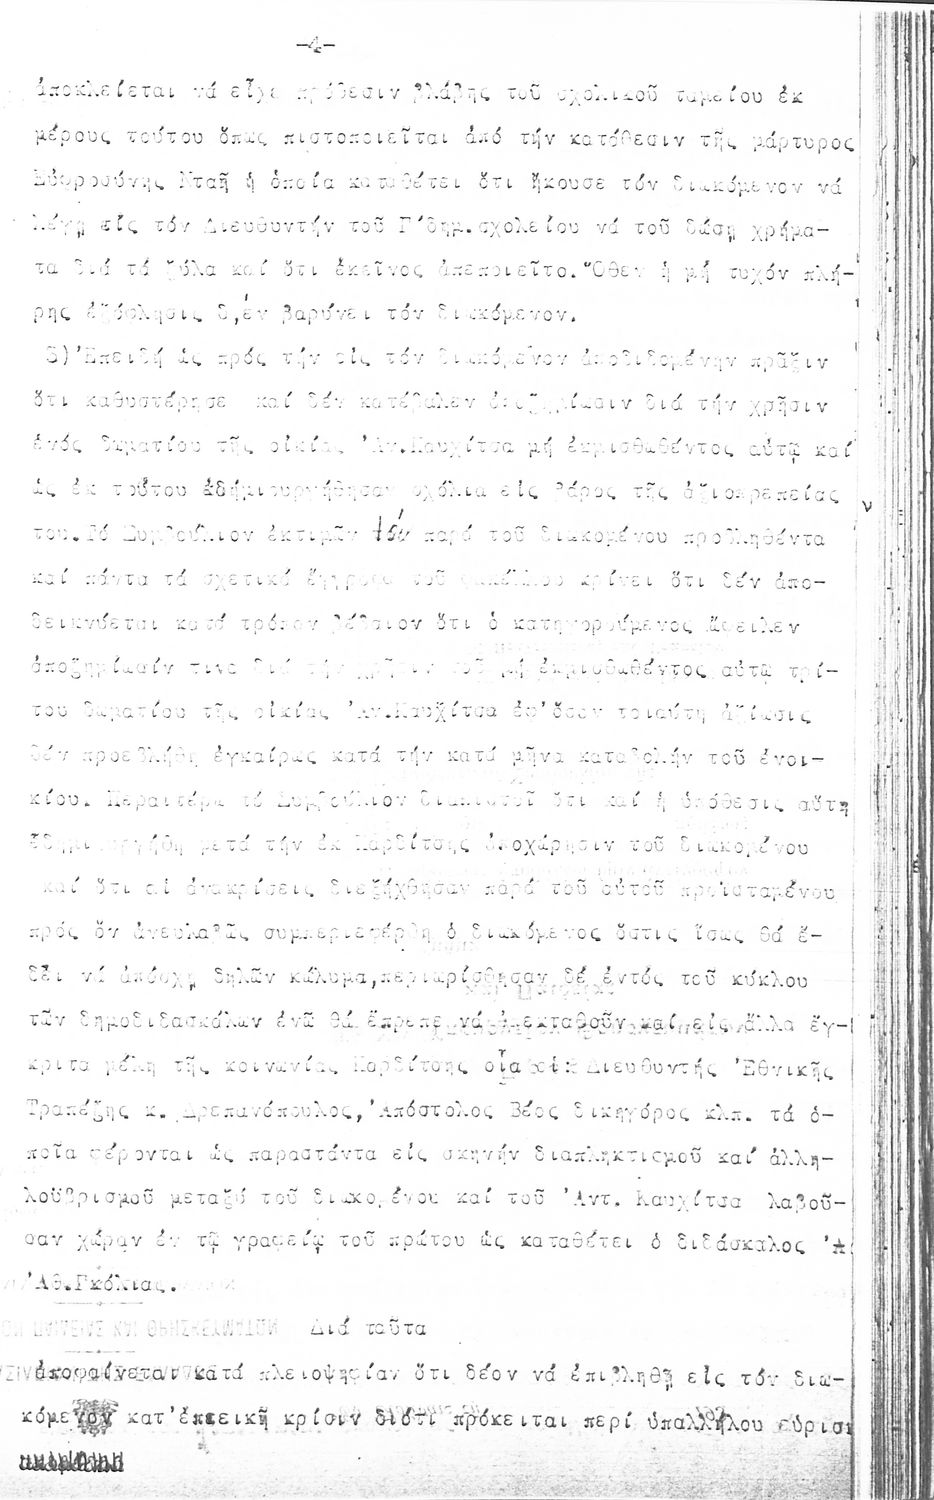 -4-
ἀποκλείεται νά εἶχε πρόθεσιν βλάβης τοῦ σχολικοῦ ταμείου ἐκ
μέρους τούτου ὅπως πιστοποιεῖται ἀπό τήν κατάθεσιν τῆς μάρτυρος
Εὐφροσύνης Νταῆ ἡ ὁποία καταθέτει ὅτι ἤκουσε τόν διωκόμενον νά
λέγῃ είς τόν Διευθυντήν τοῦ Γ΄δημ.σχολείου νά τοῦ δώσῃ χρήμα-
τα διά τά ξύλα καί ὅτι ἐκεῖνος ἀπεποιεῖτο. Ὅθεν ἡ μή τυχόν πλή-
ρης ἐξόφλησις δ,έν βαρύνει τόν διωκόμενον.
3) Ἐπειδή ὡς πρός τήν είς τόν διωκόμενον ἀποδιδομένην πρᾶξιν
ὅτι καθυστέρησε καί δέν κατέβαλεν ἀποζημίωσιν διά τήν χρῆσιν
ἑνός δωματίου τῆς οἰκίας Ἀν.Καυχίτσα μή ἐκμισθωθέντος αὐτῷ καί
ὡς ἐκ τούτου ἐδημιουργήθησαν σχόλια είς βάρος τῆς ἀξιοπρεπείας
του.Τό Συμβούλιον ἐκτιμῶν τά παρά τοῦ διωκομένου προβληθέντα
καί πάντα τά σχετικά ἔγγραφα τοῦ φακέλλου κρίνει ὅτι δέν ἀπο-
δεικνύεται κατά τρόπον βέβαιον ὅτι ὁ κατηγορούμενος ὤφειλεν
ἀποζημίωσίν τινα διά τήν χρῆσιν τοῦ μή ἐκμισθωθέντος αὐτῷ τρί-
του δωματίου τῆς οἰκίας Ἀν.Καυχίτσα ἐφ'ὅσον τοιαύτη ἀξίωσις
δέν προεβλήθη ἐγκαίρως κατά τήν κατά μῆνα καταβολήν τοῦ ἐνοι-
κίου. Περαιτέρω τό Συμβούλιον διαπιστοῖ ὅτι καί ἡ ὑπόθεσις αὕτη
ἐδημιουργήθη μετά τήν ἐκ Καρδίτσης ἀποχώρησιν τοῦ διωκομένου
καί ὅτι αἱ ἀνακρίσεις διεξήχθησαν παρά τοῦ αὐτοῦ προϊσταμένου
πρός ὅν ἀνευλαβῶς συμπεριεφέρθη ὁ διωκόμενος ὅστις ἴσως θά ἔ-
δει νά ἀπόσχῃ δηλῶν κώλυμα,περιωρίσθησαν δέ ἐντός τοῦ κύκλου
τῶν δημοδιδασκάλων ἐνῶ θά ἔπρεπε νά ἐκταθοῦν καί είς ἄλλα ἔγ-
κριτα μέλη τῆς κοινωνίας Καρδίτσης οἷα Διευθυντής Ἐθνικῆς
Τραπέζης κ. Δρεπανόπουλος, Ἀπόστολος Βέος δικηγόρος κλπ. τά ὁ-
ποῖα φέρονται ὡς παραστάντα είς σκηνήν διαπληκτισμοῦ καί ἀλλη-
λοϋβρισμοῦ μεταξύ τοῦ διωκομένου καί τοῦ Ἀντ. Καυχίτσα λαβοῦ-
σαν χώραν ἐν τῷ γραφείῳ τοῦ πρώτου ὡς καταθέτει ὁ διδάσκαλος
Ἀθ.Γκόλιας.
Διά ταῦτα
ἀποφαίνεται κατά πλειοψηφίαν ὅτι δέον νά ἐπιβληθῇ είς τόν διω-
κόμενον κατ'ἐπιεικῆ κρίσιν διότι πρόκειται περί ὑπαλλήλου εὑρισκ